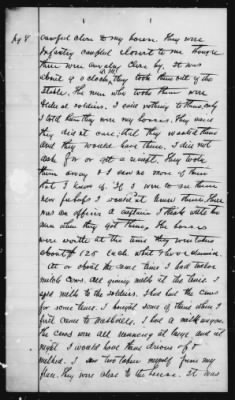 camped close to my house. They were
Infantry camped closest to me though
there were cavalry close by. It was
about 9 o'clock, they took them out of the
stable. The men who took them were
soldiers. I said nothing to them, only
I told them they were my horses. They said
they did not care, that they wanted them
and they would have them. I did not
ask for or get a receipt. They rode
them away & I saw no more of them
that I know of. If I were to see them
now perhaps I would not know them. There
was an officer a captain I think with the
men when they got them. The horses
were worth at the time they were taken
about $125 each what I have claimed.
At or about the same time I had
milch cows all giving milk at the time. I
sold milk to the soldiers. I had had the cows
for some time. I bought some of them when I
first came to Nashville. I had a milk wagon.
the cows were all running at large, and at
night I would have them driven up &
milked. I saw two taken myself from my
place. They were close to the house. It was